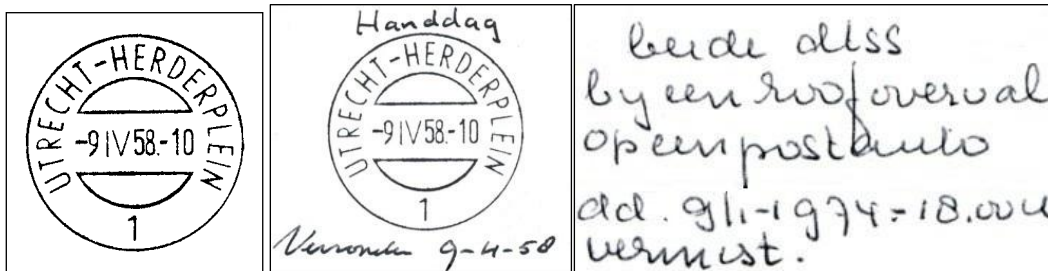 UTRECHT-HERDERPLEIN
-9 IV 58.-10
1
Handdag
UTRECHT-HERDERPLEIN
-9 IV 58.-10
1
Verzonden 9-4-58
beide dLss
by een roofoverval
op een postauto
dd. 9/1-1974-18.00u
vermist.